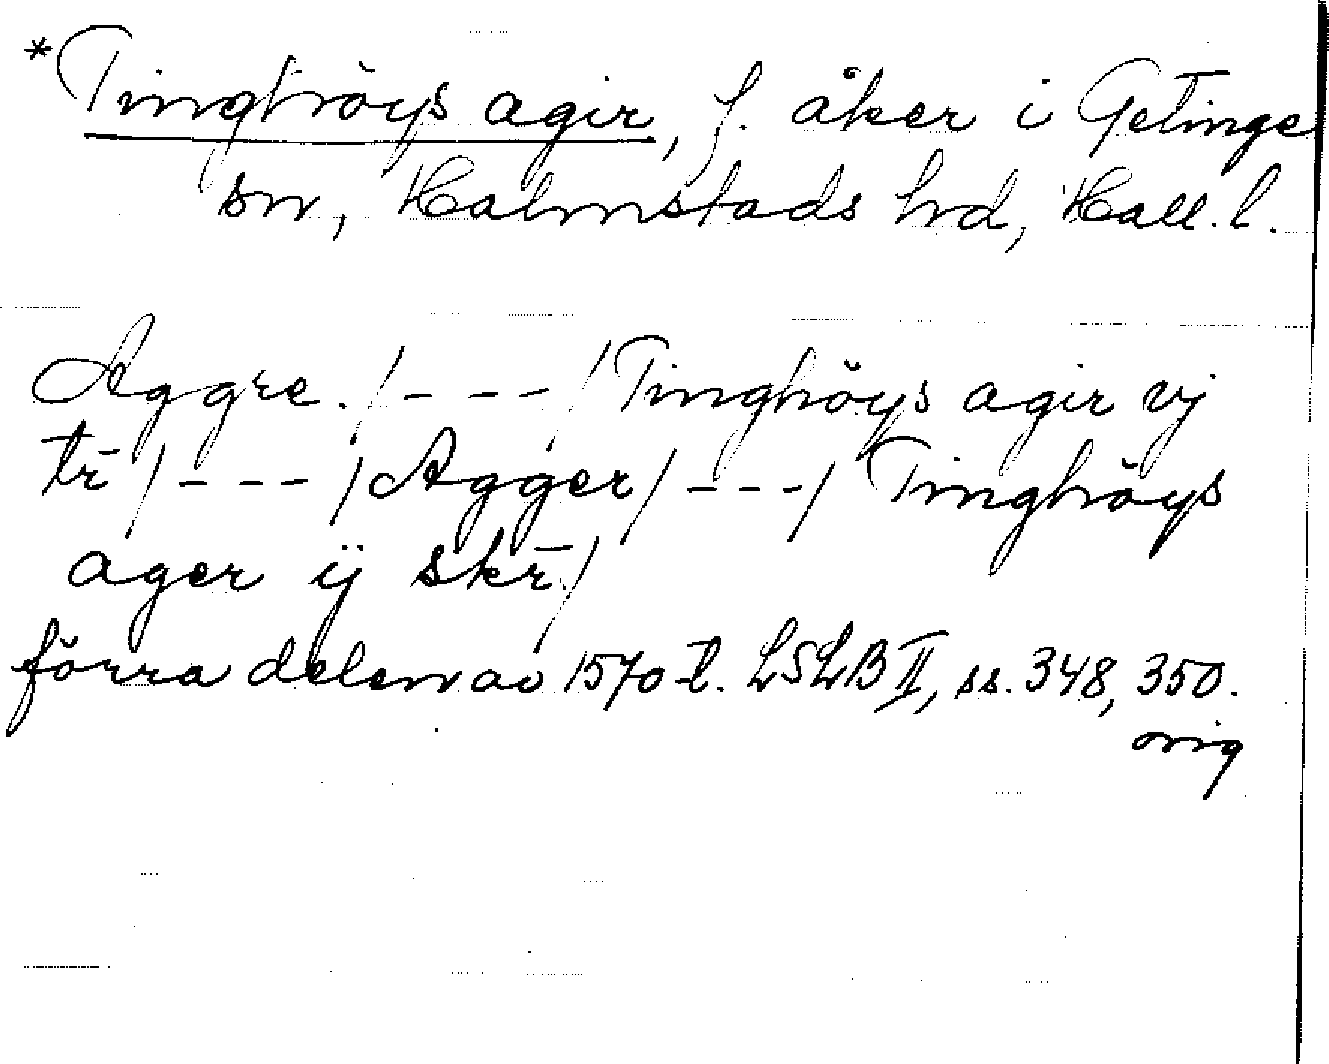 *Tinghöys agir, f. åker i Getinge
sn, Halmstads hd, Hall. l.
Aggre. /---/ Tinghöys agir vj
tr̄ /---/ Agger /---/ Tinghöys
ager ij skr̄ /
förra delen av 1570-t. LSLB II, ss. 348, 350.
orig